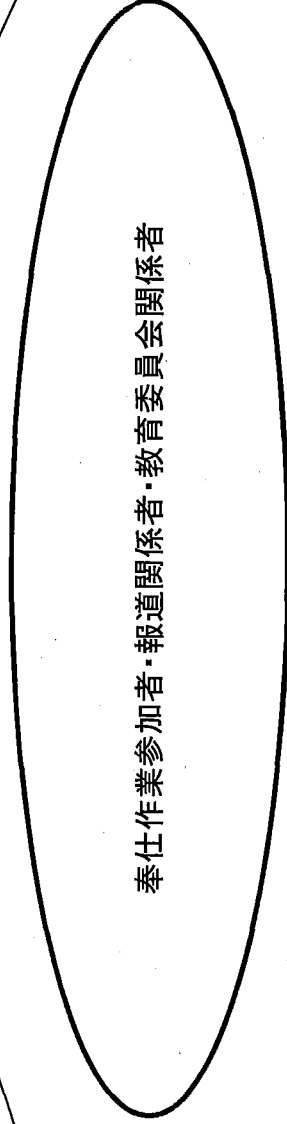 奉仕作業参加者・報道関係者・教育委員会関係者